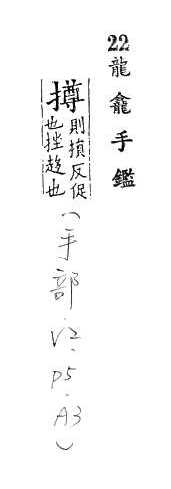 22龍龕手鑑
撙則損反促
也挫趍也
(手部.V2.P5.A3)